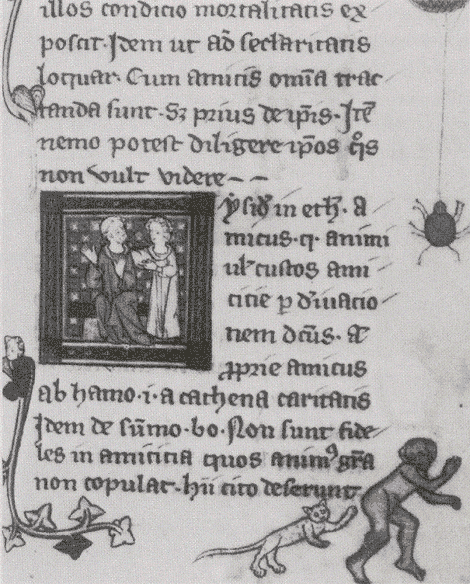 illos condicio mortalitatis ex
poscit. Idem ut ad seclaritatis
loquar. Cum amicis omīa trac
tanda sunt. Sꝫ prius de ip̄is. Itē
nemo potest diligere ip̄os q̄s
non vult videre
ysid᷑ in eth. a
micus. q. animi
ul᷑ custos ami
citie ꝑ diuacio
nem dc̄us. a᷑
ꝓprie amicus
ab hamo. i. a cathena caritatis
Idem de sūmo. bo. Non sunt fide
les in amicicia quos animꝰ gr̄a
non copulat. hii cito deserunt